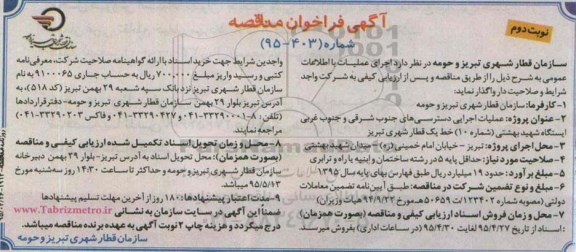 آگهی فراخوان مناقصه
شماره (۴۰۳-۹۵)
نوبت دوم
سازمان قطار شهری تبریز و حومه در نظر دارد اجرای عملیات با اطلاعات
عمومی به شرح ذیل را از طریق مناقصه و پس از ارزیابی کیفی به شرکت واجد
شرایط و صلاحیت دار واگذار نماید:
۱- کارفرما: سازمان قطار شهری تبریز و حومه
۲- عنوان پروژه: عملیات اجرایی دسترسی‌های جنوب شرقی و جنوب غربی
ایستگاه شهید بهشتی (شماره ۱۰) خط یک قطار شهری تبریز
۳- محل اجرای پروژه: تبریز - خیابان امام خمینی (ره) - میدان شهید بهشتی
۴- صلاحیت مورد نیاز: حداقل پایه ۵ در رشته ساختمان و ابنیه یا راه و ترابری
۵- مبلغ برآورد: حدود ۱۹ میلیارد ریال طبق فهارس بهای پایه سال ۱۳۹۵
۶- مبلغ و نوع تضمین شرکت در مناقصه: طبق آیین نامه تضمین معاملات
دولتی (مصوبه شماره ۱۲۳۴۰۲/ت۵۰۶۵۹هـ مورخ ۹۴/۹/۲۲ هیات وزیران)
۷- محل و زمان فروش اسناد ارزیابی کیفی و مناقصه (بصورت همزمان)
: اسناد از تاریخ ۹۵/۴/۲۷ لغایت تاریخ ۹۵/۴/۳۰ (در ساعات اداری) بفروش میرسد
واجدین شرایط جهت خرید اسناد با ارائه گواهینامه صلاحیت شرکت، معرفی نامه
کتبی و رسید واریز مبلغ ۷۰۰۰۰۰ ریال به حساب جاری ۹۱۰۰۰۶۵ به نام
سازمان قطار شهری تبریز نزد بانک سپه شعبه ۲۹ بهمن تبریز (کد ۵۱۸)، به
آدرس تبریز بلوار ۲۹ بهمن سازمان قطار شهری تبریز و حومه- دفتر قراردادها
تلفن: ۸-۰۴۱-۳۳۲۹۰۰۰۱ و ۰۴۱-۳۳۲۹۰۴۲۷ و فاکس ۰۴۱-۳۳۲۹۰۲۰۳
مراجعه نمایند.
۸- محل و زمان تحویل اسناد تکمیل شده ارزیابی کیفی و مناقصه
(بصورت همزمان): محل تحویل اسناد به آدرس تبریز- بلوار ۲۹ بهمن دبیرخانه
سازمان قطار شهری تبریز و حومه و حداکثر تا ساعت ۱۴:۳۰ روز سه شنبه مورخ
۹۵/۵/۱۲ میباشد.
۹- مدت اعتبار پیشنهادها: ۱۸۰ روز از آخرین مهلت تسلیم پیشنهادها
ضمناً این آگهی در سایت سازمان به نشانی www.Tabrizmetro.ir
درج میگردد و هزینه چاپ ۲ نوبت آگهی به عهده برنده مناقصه میباشد.
سازمان قطار شهری تبریز و حومه